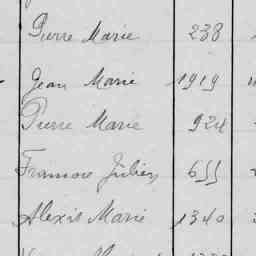 Pierre Marie 238
Jean Marie 1919
Pierre Marie 924
Julien 655
Alexis Marie 1340